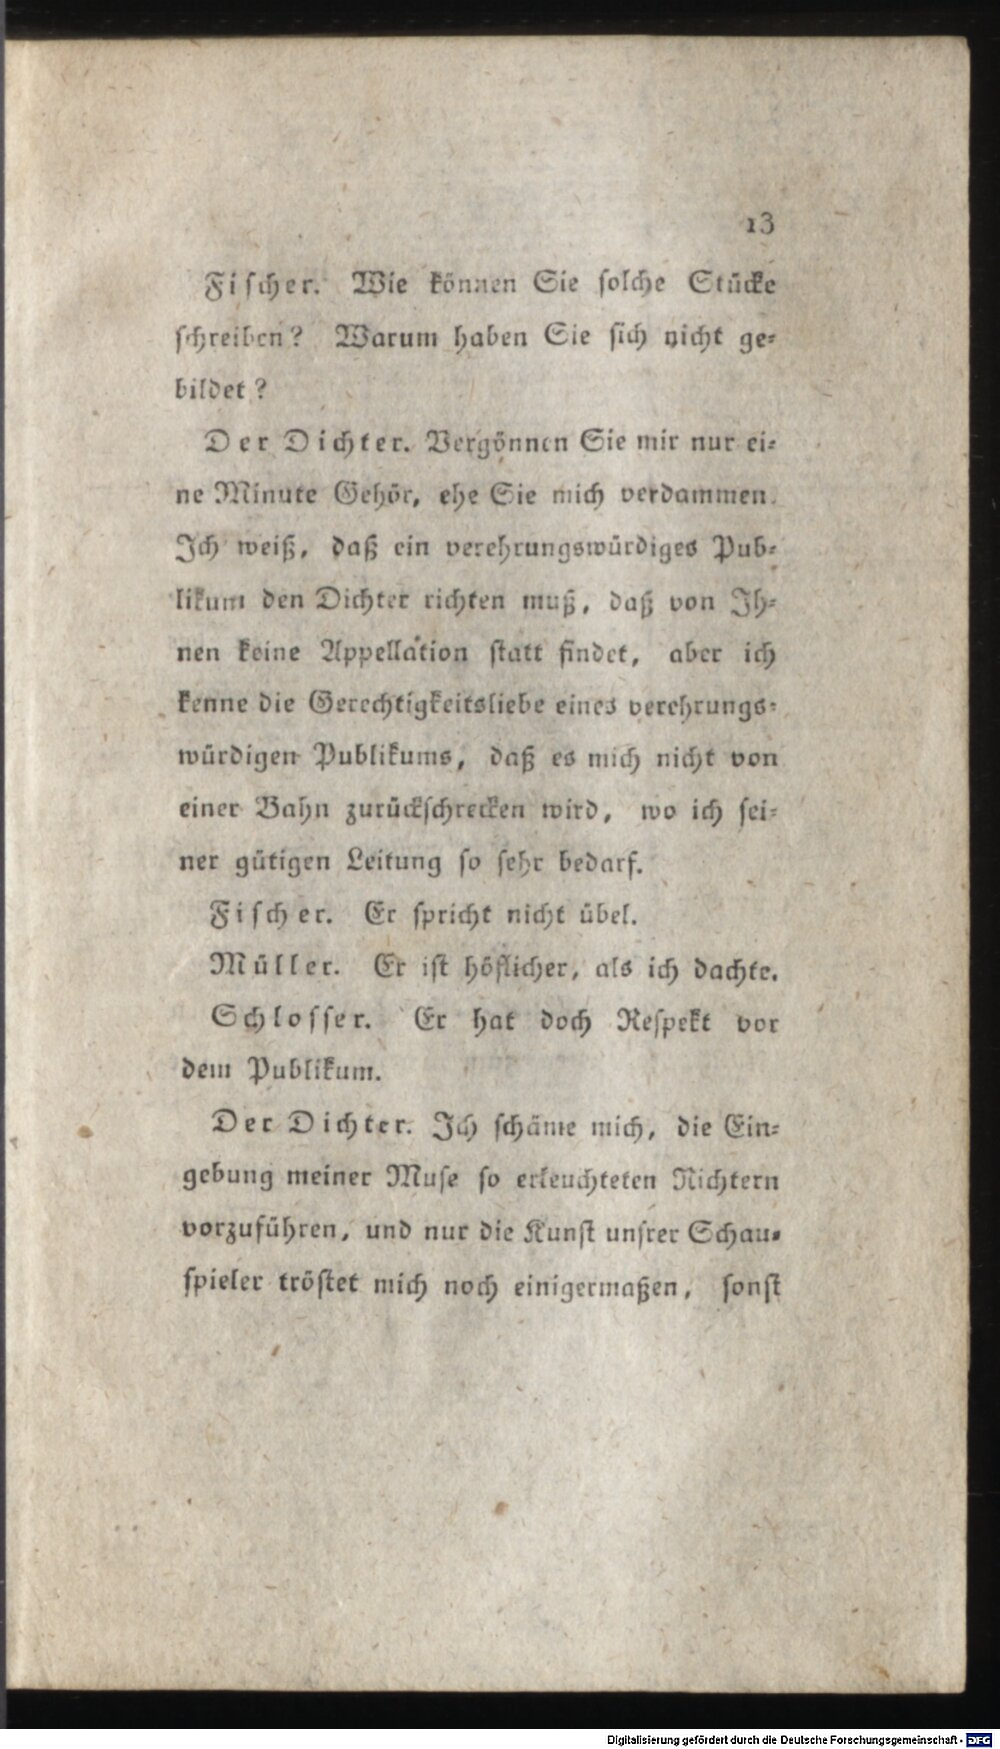 13
Fischer. Wie können Sie solche Stücke
schreiben? Warum haben Sie sich nicht ge-
bildet?
Der Dichter. Vergönnen Sie mir nur ei-
ne Minute Gehör, ehe Sie mich verdammen.
Ich weiß, daß ein verehrungswürdiges Pub-
likum den Dichter richten muß, daß von Ih-
nen keine Appellation statt findet, aber ich
kenne die Gerechtigkeitsliebe eines verehrungs-
würdigen Publikums, daß es mich nicht von
einer Bahn zurückschrecken wird, wo ich sei-
ner gütigen Leitung so sehr bedarf.
Fischer. Er spricht nicht übel.
Müller. Er ist höflicher, als ich dachte.
Schlosser. Er hat doch Respekt vor
dem Publikum.
Der Dichter. Ich schäme mich, die Ein-
gebung meiner Muse so erleuchteten Richtern
vorzuführen, und nur die Kunst unsrer Schau-
spieler tröstet mich noch einigermaßen, sonst
Digitalisierung gefördert durch die Deutsche Forschungsgemeinschaft - DFG